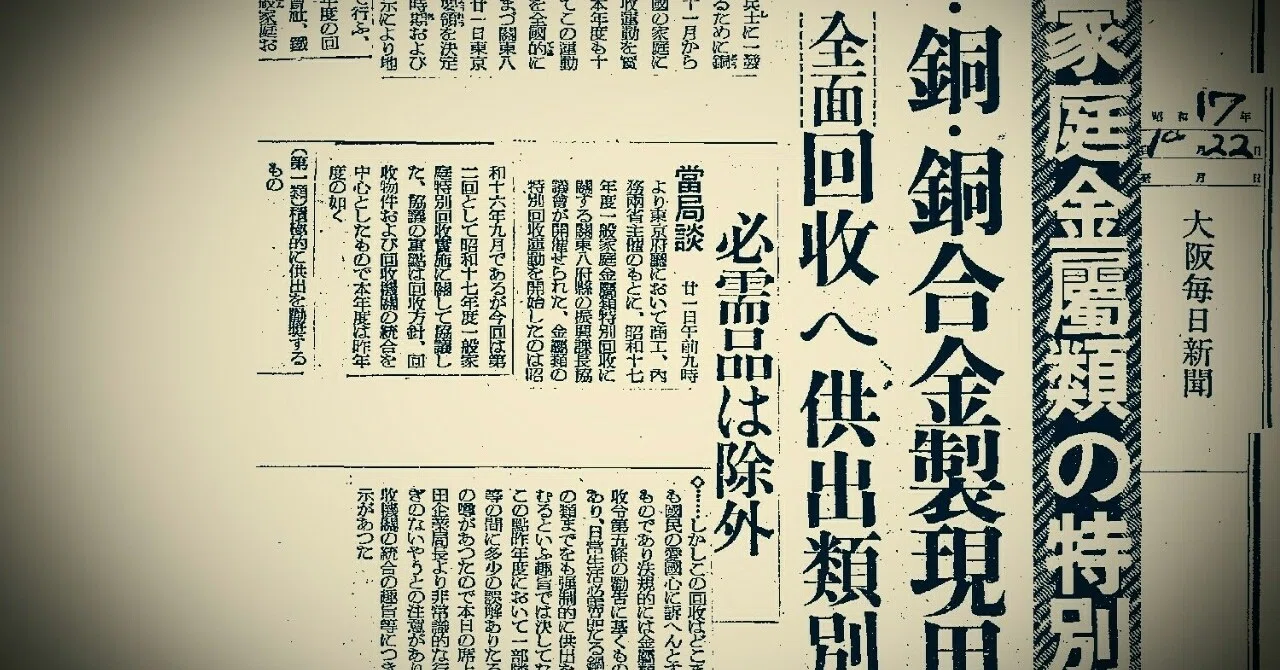 昭和17年
10月22日
至 月 日
大阪毎日新聞
家庭金属類の特別
・銅・銅合金製現用
全面回収へ供出類別
必需品は除外
當局談
廿一日午前九時
より東京府廳において商工、內
務兩省主催のもとに、昭和十七
年度一般家庭金屬類特別回收に
關する關東八府縣の振興課長協
議會が開催せられた、金屬類の
特別回收運動を開始したのは昭
和十六年九月であるが今回は第
二回として昭和十七年度一般家
庭特別回收實施に關して協議し
た、協議の重點は回收方針、回
收物件および回收機關の統合を
中心としたもので本年度は昨年
度の如く
(第一類)積極的に供出を勸奬する
もの
兵士に一發
るために銅
十一月から
國の家庭に
收運動を實
本年度も十
てこの運動
を全國的に
まづ關東八
廿一日東京
要領を決定
時期および
示により地
て行ふ、
年度の回
會社、鐵
般家庭お
◇……しかしこの回收はどこま
も國民の愛國心に訴へんとす
ものであり法規的には金屬類
收令第五條の勸告に基くもの
あり、日常生活必需品たる鍋
の類までをも强制的に供出せ
むるといふ趣旨では決してな
この點昨年度において一部隣
等の間に多少の誤解ありたる
の噂があつたので本日の席上
田企業局長より非常識的な行
ぎのないやうとの注意があり
收機關の統合の趣旨等につき
示があつた